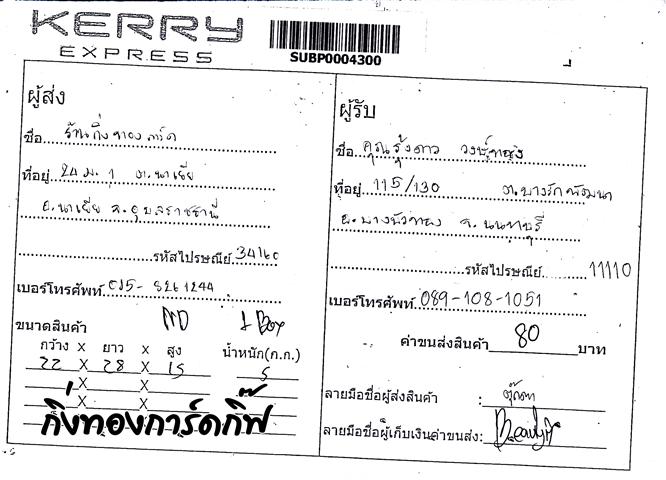 KERRY
EXPRESS
SUBP0004300
ผู้ส่ง
ชื่อ ร้านกิ่งทองการ์ด
ที่อยู่ 24 ม. 1 ต. นาเยีย
อ. นาเยีย จ. อุบลราชธานี
รหัสไปรษณีย์ 34160
เบอร์โทรศัพท์ 045-8261244
ขนาดสินค้า ND 1 Box
กว้าง x ยาว x สูง น้ำหนัก(ก.ก.)
22 X 28 X 15 5
X X
X X
กิ่งทองการ์ดกิ๊ฟ
ผู้รับ
ชื่อ คุณรุ้งดาว วงษ์ทอง
ที่อยู่ 115/130 ต. บางรักพัฒนา
อ. บางบัวทอง จ. นนทบุรี
รหัสไปรษณีย์ 11110
เบอร์โทรศัพท์ 089-108-1051
ค่าขนส่งสินค้า 80 บาท
ลายมือชื่อผู้ส่งสินค้า :
ลายมือชื่อผู้เก็บเงินค่าขนส่ง: